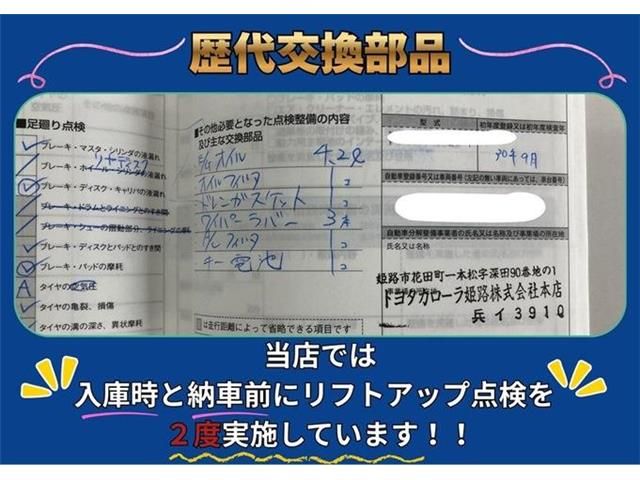 歴代交換部品
■足廻り点検
ブレーキ・マスタ・シリンダの液漏れ
リヤディスク
ブレーキ・ホイール・シリンダの液漏れ
ブレーキ・ディスク・キャリパの液漏れ
ブレーキ・ドラムとライニングとのすき間
ブレーキ・シューの摺動部分、ライニングの摩耗
ブレーキ・ディスクとパッドとのすき間
ブレーキ・パッドの摩耗
A タイヤの空気圧
タイヤの亀裂、損傷
タイヤの溝の深さ、異状摩耗
■その他必要となった点検整備の内容
及び主な交換部品
E/gオイル 4.2ℓ
オイルフィルタ 1コ
ドレンガスケット 1コ
ワイパーラバー 3本
フィルタ 1コ
キー電池 1コ
は走行距離によって省略できる項目です
型式
初年度登録又は初年度検査年
30年9月
自動車登録番号又は車両番号(左記の無い車両にあっては、車台番号)
自動車分解整備事業者の氏名又は名称及び事業場の所在地
氏名又は名称
姫路市花田町一本松字深田90番地の1
トヨタカローラ姫路株式会社本店
兵イ3910
当店では
入庫時と納車前にリフトアップ点検を
2度実施しています!!